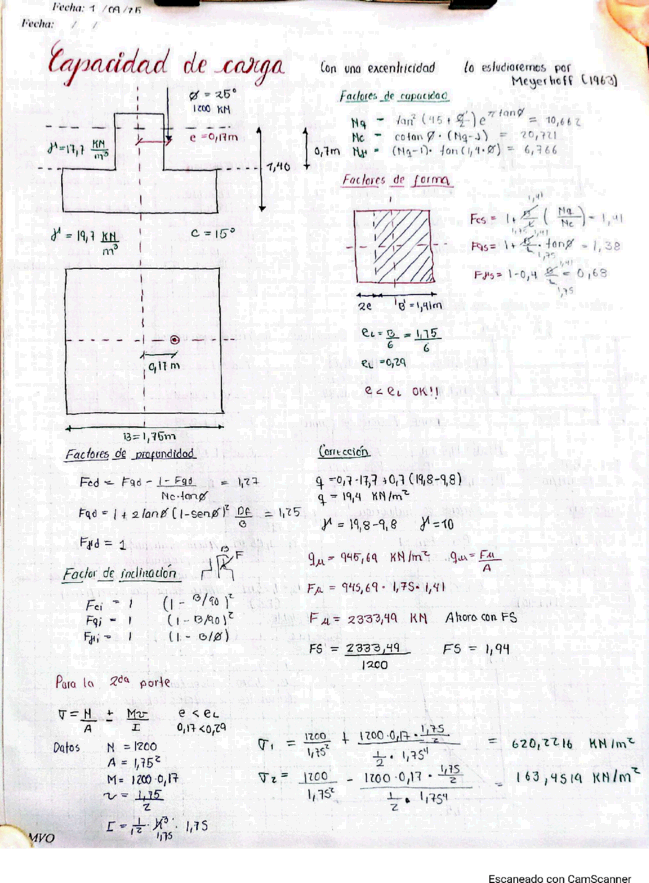 Fecha: 1 / 09 / 25
Fecha: / /
Capacidad de carga
Con una excentricidad lo estudiaremos por
Meyerhoff (1963)
Ø = 25°
1200 KN
e = 0,17m
γ = 17,7 KN/m³
0,7m
1,40
γ = 19,7 KN/m³
C = 15°
0,17 m
B = 1,75m
Factores de capacidad
Nq = tan² (45 + Ø/2) e^π tanØ = 10,662
Nc = cotan Ø · (Nq-1) = 20,721
Nγ = (Nq-1) · tan(1,4·Ø) = 6,766
Factores de forma
2e B' = 1,41m
Fcs = 1 + B/L (Nq/Nc) = 1,41
1,41
1,75
Fqs = 1 + B/L · tanØ = 1,38
1,41
1,75
Fγs = 1-0,4 B/L = 0,68
1,75
eL = B/6 = 1,75/6
eL = 0,29
e < eL OK!!
Factores de profundidad
Fcd = Fqd - (1 - Fqd)/(Nc·tanØ) = 1,27
Fqd = 1 + 2 tanØ (1-senØ)² Df/B = 1,25
Fγd = 1
Factor de inclinación
B
F
Fci = 1 (1 - B/90)²
Fqi = 1 (1 - B/90)²
Fγi = 1 (1 - B/Ø)
Corrección
q = 0,7·17,7 + 0,7 (19,8-9,8)
q = 19,4 KN/m²
γ' = 19,8-9,8 γ' = 10
qμ = 945,69 KN/m² qμ = Fμ/A
Fμ = 945,69 · 1,75 · 1,41
Fμ = 2333,49 KN Ahora con FS
FS = 2333,49/1200 FS = 1,94
Para la 2da parte
σ = N/A ± Mv/I e < eL
0,17 < 0,29
Datos N = 1200
A = 1,75²
M = 1200·0,17
v = 1,75/2
I = 1/12 · 1,75³ · 1,75
σ1 = 1200/1,75² + (1200·0,17·1,75/2)/(1/2 · 1,75⁴) = 620,2216 KN/m²
σ2 = 1200/1,75² - (1200·0,17·1,75/2)/(1/2 · 1,75⁴) = 163,4519 KN/m²
MVO
Escaneado con CamScanner